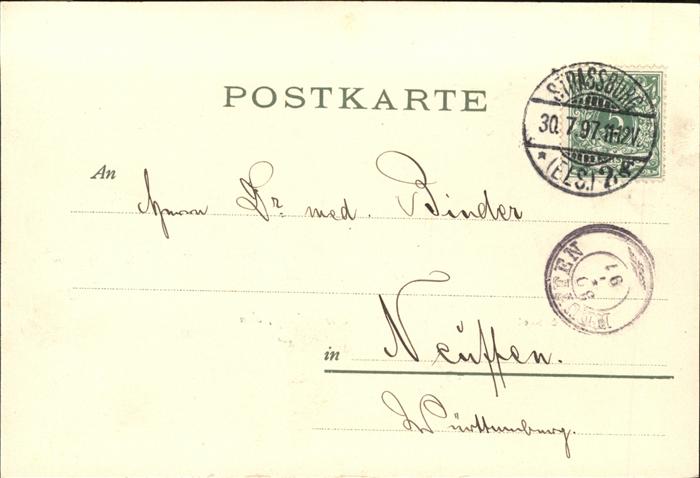 POSTKARTE
STRASSBURG
30. 7. 97. 11-12V.
* (ELS.) 2. *
5
An
Herrn Dr. med. Binder
in Neuffen.
Württemburg.